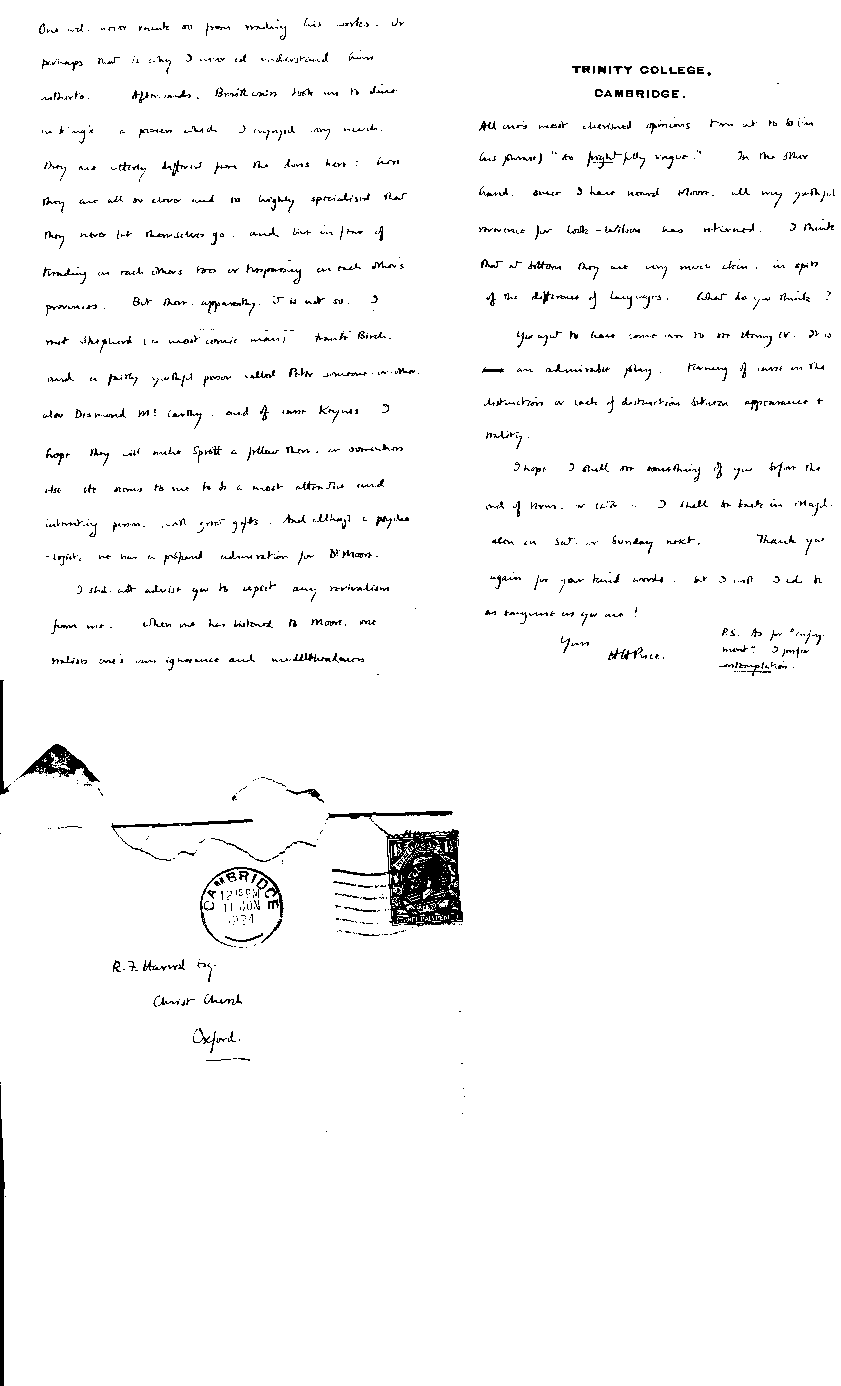 One wd. never realise so from reading his works. Or
perhaps that is why I never cd understand him
hitherto. Afterwards, Braithwaite took me to dine
in King's a process which I enjoyed very much.
They are utterly different from the dons here: here
they are all so clever and so highly specialised that
they never let themselves go, and live in fear of
treading on each others toes or trespassing on each other's
provinces. But there, apparently, it is not so. I
met Shepherd (a most comic man) Frank Birch,
and a fairly youthful person called Peter someone-or-other,
also Desmond McCarthy, and of course Keynes I
hope they will make Sprott a fellow there, or somewhere
else He seems to me to be a most attractive and
interesting person, with great gifts. And although a psycho
-logist, he has a profound admiration for Dr Moore.
I shd. not advise you to expect any revivalism
from me. When one has listened to Moore, one
realises one's own ignorance and muddleheadedness
TRINITY COLLEGE,
CAMBRIDGE.
All one's most cherished opinions turn out to be (in
his phrase) "so frightfully vague." On the other
hand, since I have heard Moore, all my youthful
reverence for Cook-Wilson has returned. I think
that at bottom they are very much akin, in spite
of the difference of languages. What do you think?
You ought to have come over to see Henry IV. It is
an admirable play. Turning of course on the
distinction or lack of distinction between appearance +
reality.
I hope I shall see something of you before the
end of term, or later. I shall be back in Magd.
alen on Sat. or Sunday next. Thank you
again for your kind words, but I wish I cd be
as sanguine as you are!
Yours
HHPrice.
P.S. As for "enjoy-
ment" I prefer
contemplation.
CAMBRIDGE
12 15 PM
11 JUN
1924
R.F. Harrod Esq.
Christ Church
Oxford.